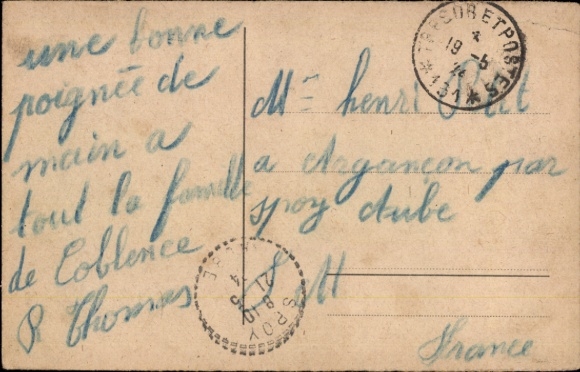 une bonne
poignée de
main a
tout la famille
de Coblence
R Thomas
TRESOR ET POSTES
*
19 -5
* 131 *
Mr henri
a Argancon par
spoy Aube
France
SPOY
AUBE